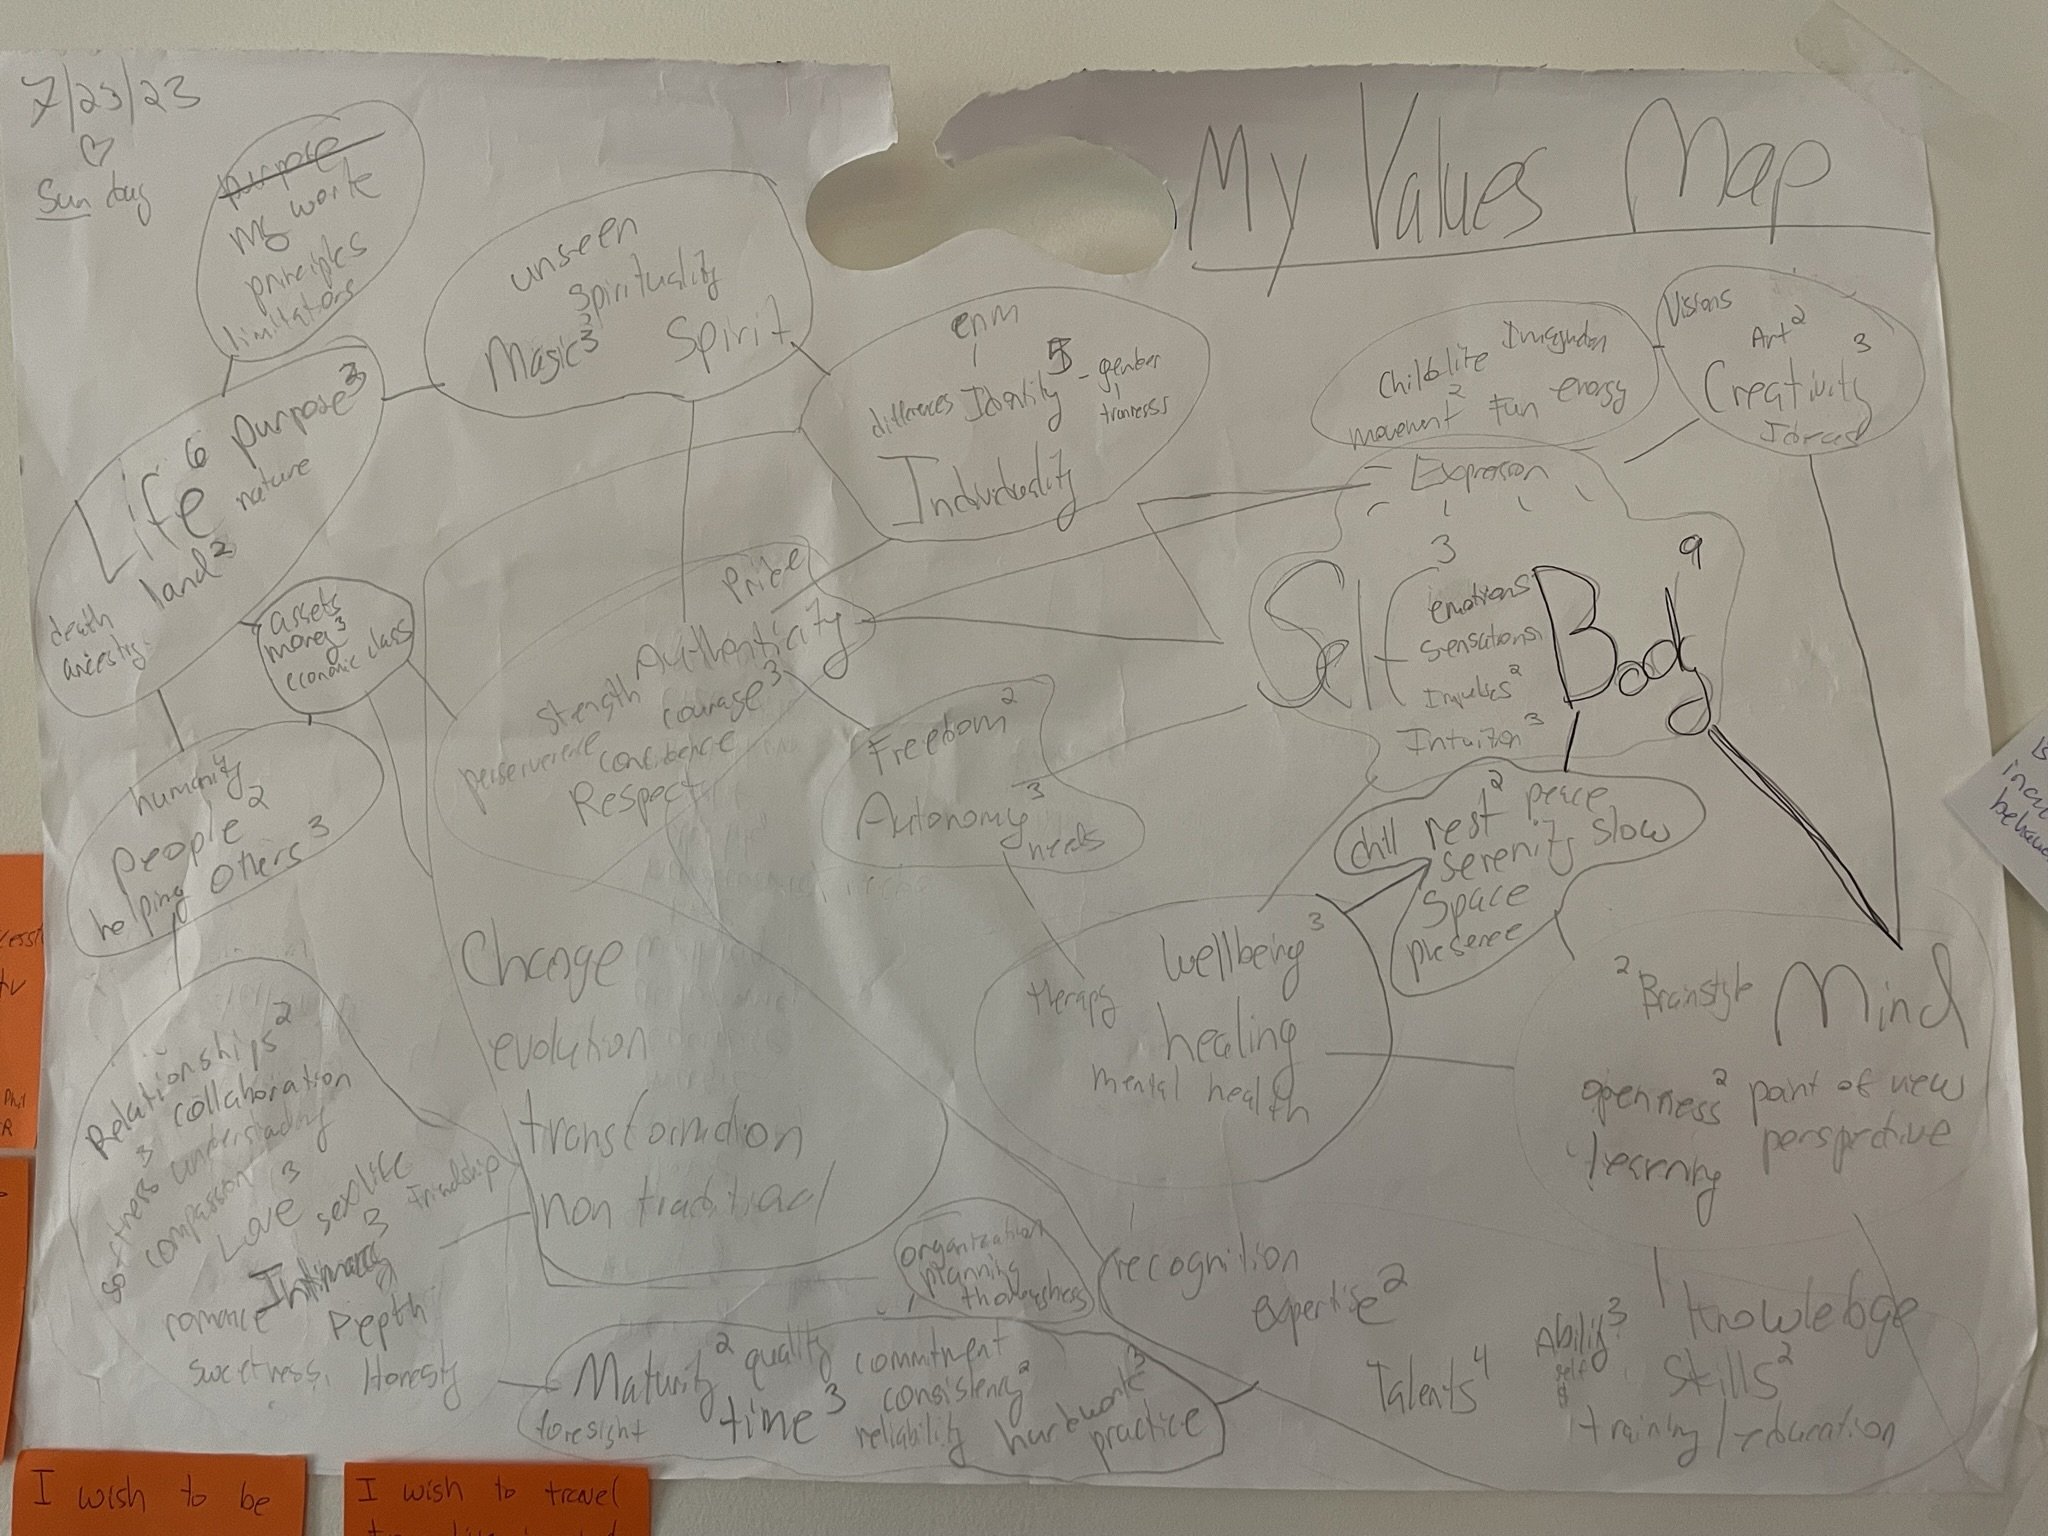 7/23/23
♡
Sunday
My Values Map
purpose
my work
principles
limitations
unseen
Spirituality
Magic 3
Spirit
enm
differences Identity 5 - gender
Individuality
Visions
Art 2
Creativity 3
Childlike
movement 2 Fun energy
Expression
Life 6 purpose 3
nature
land 2
death
ancestry
assets
money 3
economic class
Pride
Authenticity
strength
courage 3
perserverence
confidence
Respect
Freedom 2
Autonomy 3
needs
Self 3
emotions
sensations
Impulses 2
Intuiton 3
Body 9
chill rest 2 peace
serenity slow
space
presence
humanity
people 2
helping others 3
Change
evolution
transformation
non traditional
therapy
wellbeing 3
healing
mental health
2 Brainstyle Mind
openness 2 point of view
learning perspective
Relationships 2
collaboration
softness 3 understanding
compassion
Love 3 sexlife Friendship
Intimacy 3
romance Depth
sweetness, Honesty
organization
planning
Maturity 2 quality commitment
time 3 consistency 2
foresight reliability hardwork 3
practice
recognition
expertise 2
Talents 4
Ability 3
self
Knowledge
Skills 2
training / education
I wish to be
I wish to travel